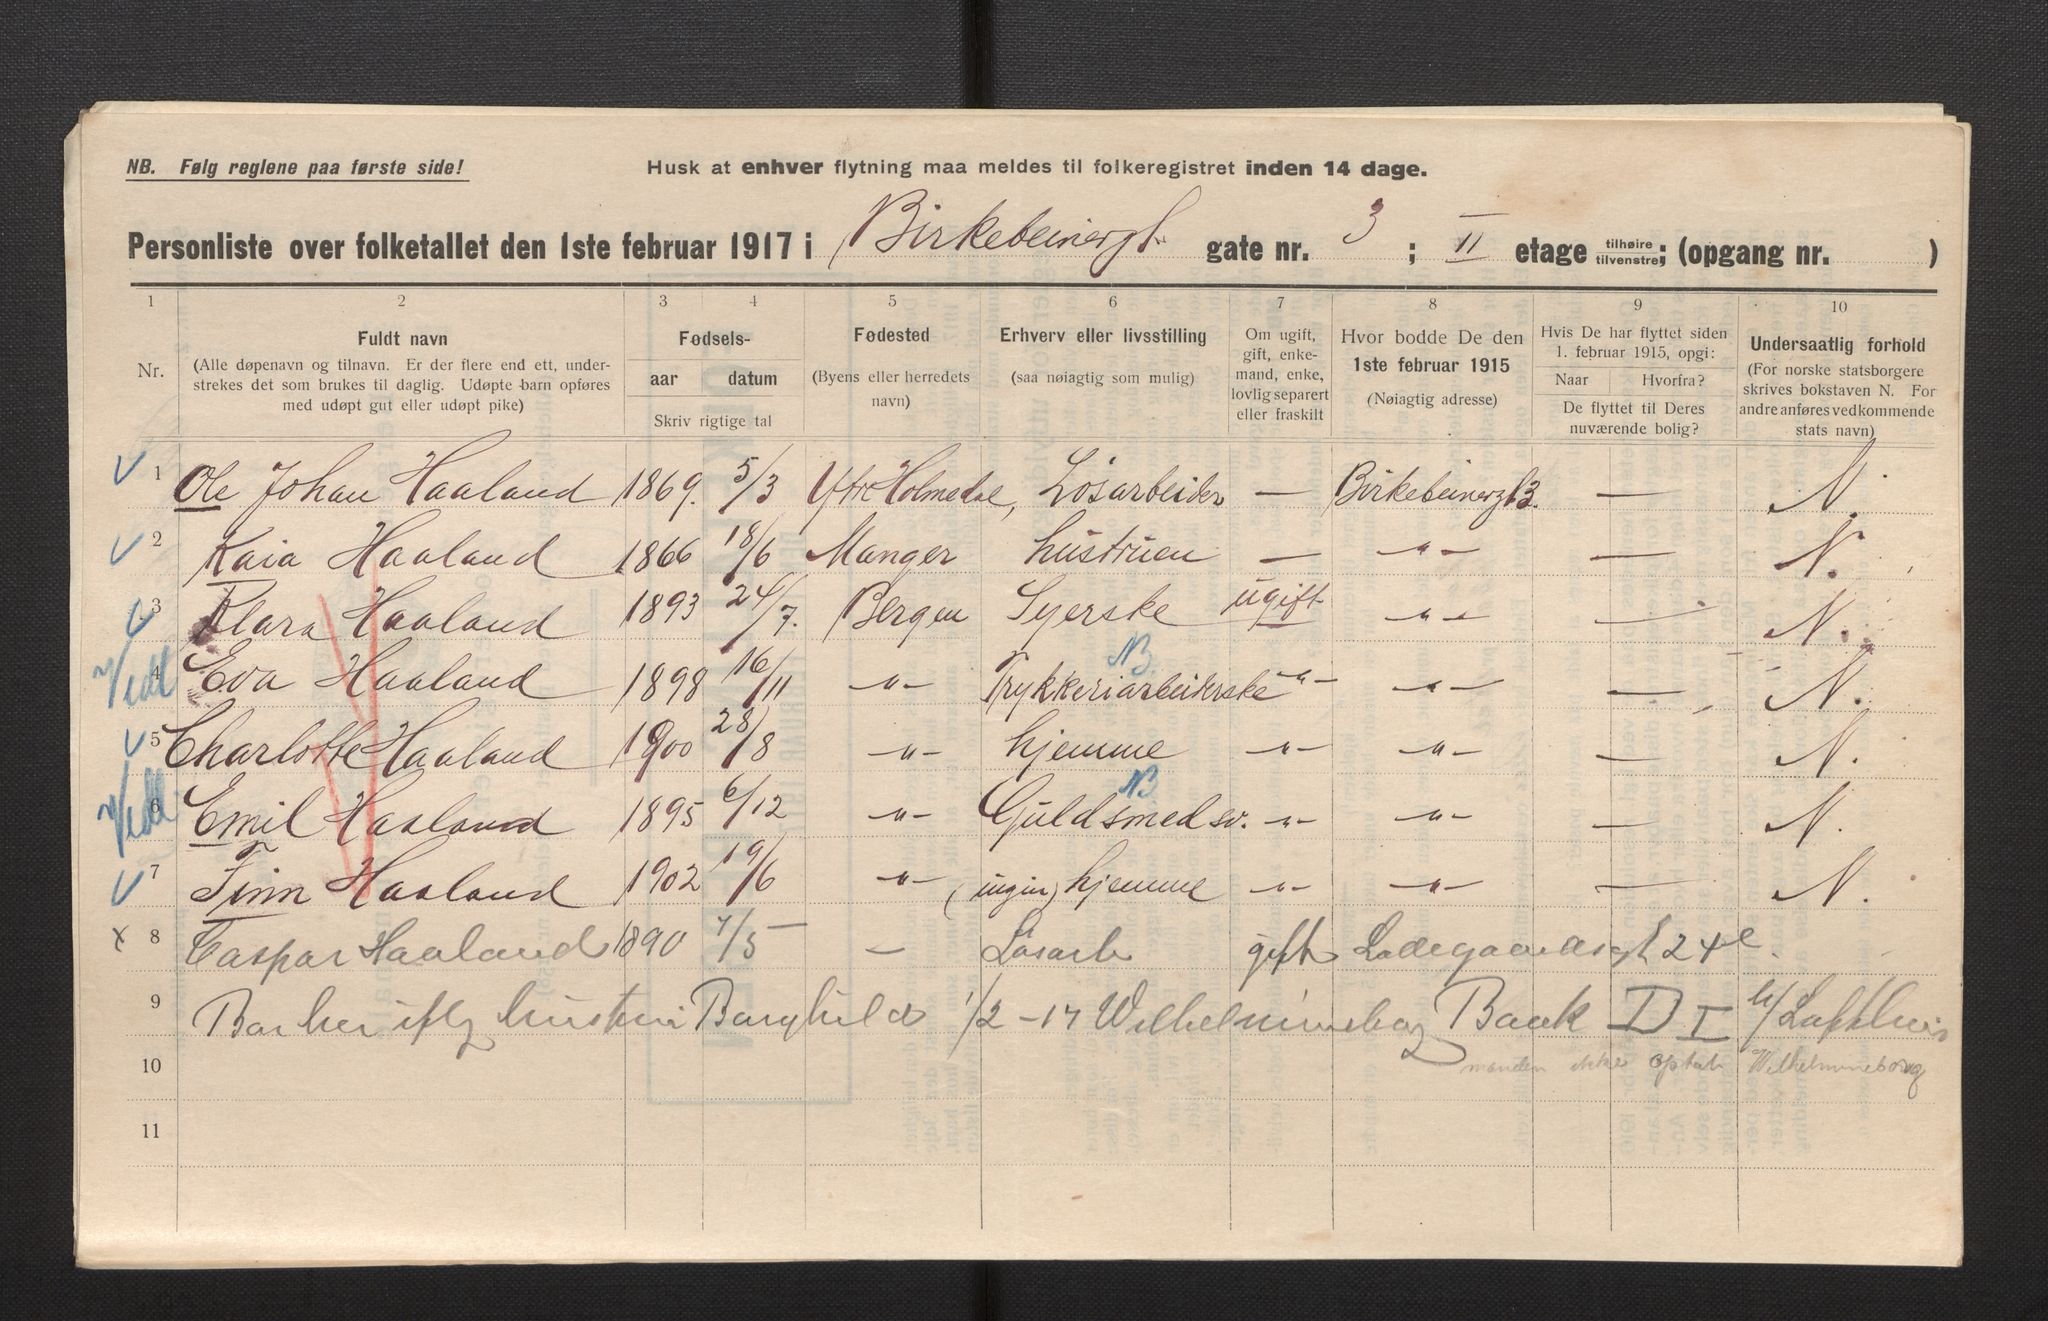 NB. Følg reglene paa første side!
Husk at enhver flytning maa meldes til folkeregistret inden 14 dage.
Personliste over folketallet den 1ste februar 1917 i Birkebeinergt. gate nr. 3 ; II etage tilhøire tilvenstre; (opgang nr. )
1 2 3 4 5 6 7 8 9 10
Nr.
Fuldt navn
(Alle døpenavn og tilnavn. Er der flere end ett, under-
strekes det som brukes til daglig. Udøpte barn opføres
med udøpt gut eller udøpt pike)
Fødsels-
aar datum
Skriv rigtige tal
Fødested
(Byens eller herredets
navn)
Erhverv eller livsstilling
(saa nøiagtig som mulig)
Om ugift,
gift, enke-
mand, enke,
lovlig separert
eller fraskilt
Hvor bodde De den
1ste februar 1915
(Nøiagtig adresse)
Hvis De har flyttet siden
1. februar 1915, opgi:
Naar Hvorfra?
De flyttet til Deres
nuværende bolig?
Undersaatlig forhold
(For norske statsborgere
skrives bokstaven N. For
andre anføres vedkommende
stats navn)
1 Ole Johan Haaland 1869. 5/3 Ytre Holmedal, Løsarbeider — Birkebeinergt 3. — N.
2 Kaia Haaland 1866 18/6 Manger hustruen — -"- — N.
3 Klara Haaland 1893 24/7. Bergen Syerske ugift -"- — N.
NB.
4 Eva Haaland 1898 16/11 -"- Trykkeriarbeiderske -"- -"- — N.
5 Charlotte Haaland 1900 28/8 -"- hjemme -"- -"- — N.
NB.
6 Emil Haaland 1895 6/12 -"- Guldsmedsv. -"- -"- — N.
7 Finn Haaland 1902 19/6 -"- (ingin) hjemme -"- -"- — N.
x 8 Caspar Haaland 1890 7/5 — Løsarb gift Ladegaardsgt 24
9 Bor her iflg hustru Borghild 1/2-17 Wilhelmineborg Baak D I
10 manden ikke optat Wilhelmineborg
11